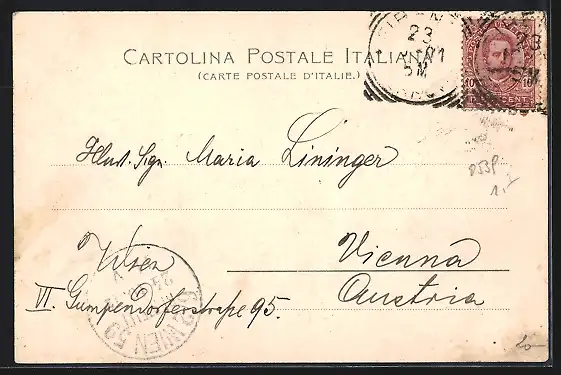 CARTOLINA POSTALE ITALIANA
(CARTE POSTALE D'ITALIE.)
23
5M
10 10
CENT
Illust. Sgn. Maria Lininger
Wien Vienna
VI. Gumpendorferstraße 95. Austria
WIEN